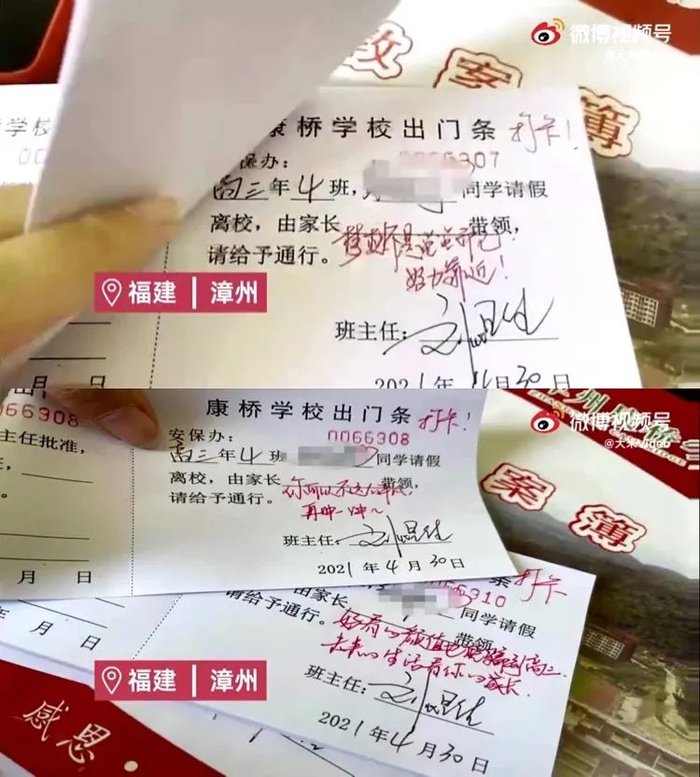 微博视频号
教案簿
学校
康桥学校出门条 打卡!
保办:
0066307
高三年4班,
同学请假
离校,由家长
带领,
请给予通行。
梦想不是
努力靠近!
福建 | 漳州
班主任:
2021年4月30日
月 日
微博视频号
@大米Video
66908
康桥学校出门条 打卡!
安保办:
0066908
主任批准,
高三年4班
同学请假
离校,由家长
带领,
请给予通行。
你可以不这么
再冲一冲~
班主任:
2021年4月30日
月 日
案簿
条 打卡
6910
由家长
同学请假
请给予通行。
带领,
好看的颜值
高三.
未来的生活有你的成长.
福建 | 漳州
班主任:
2021年4月30日
年 月 日
感恩·